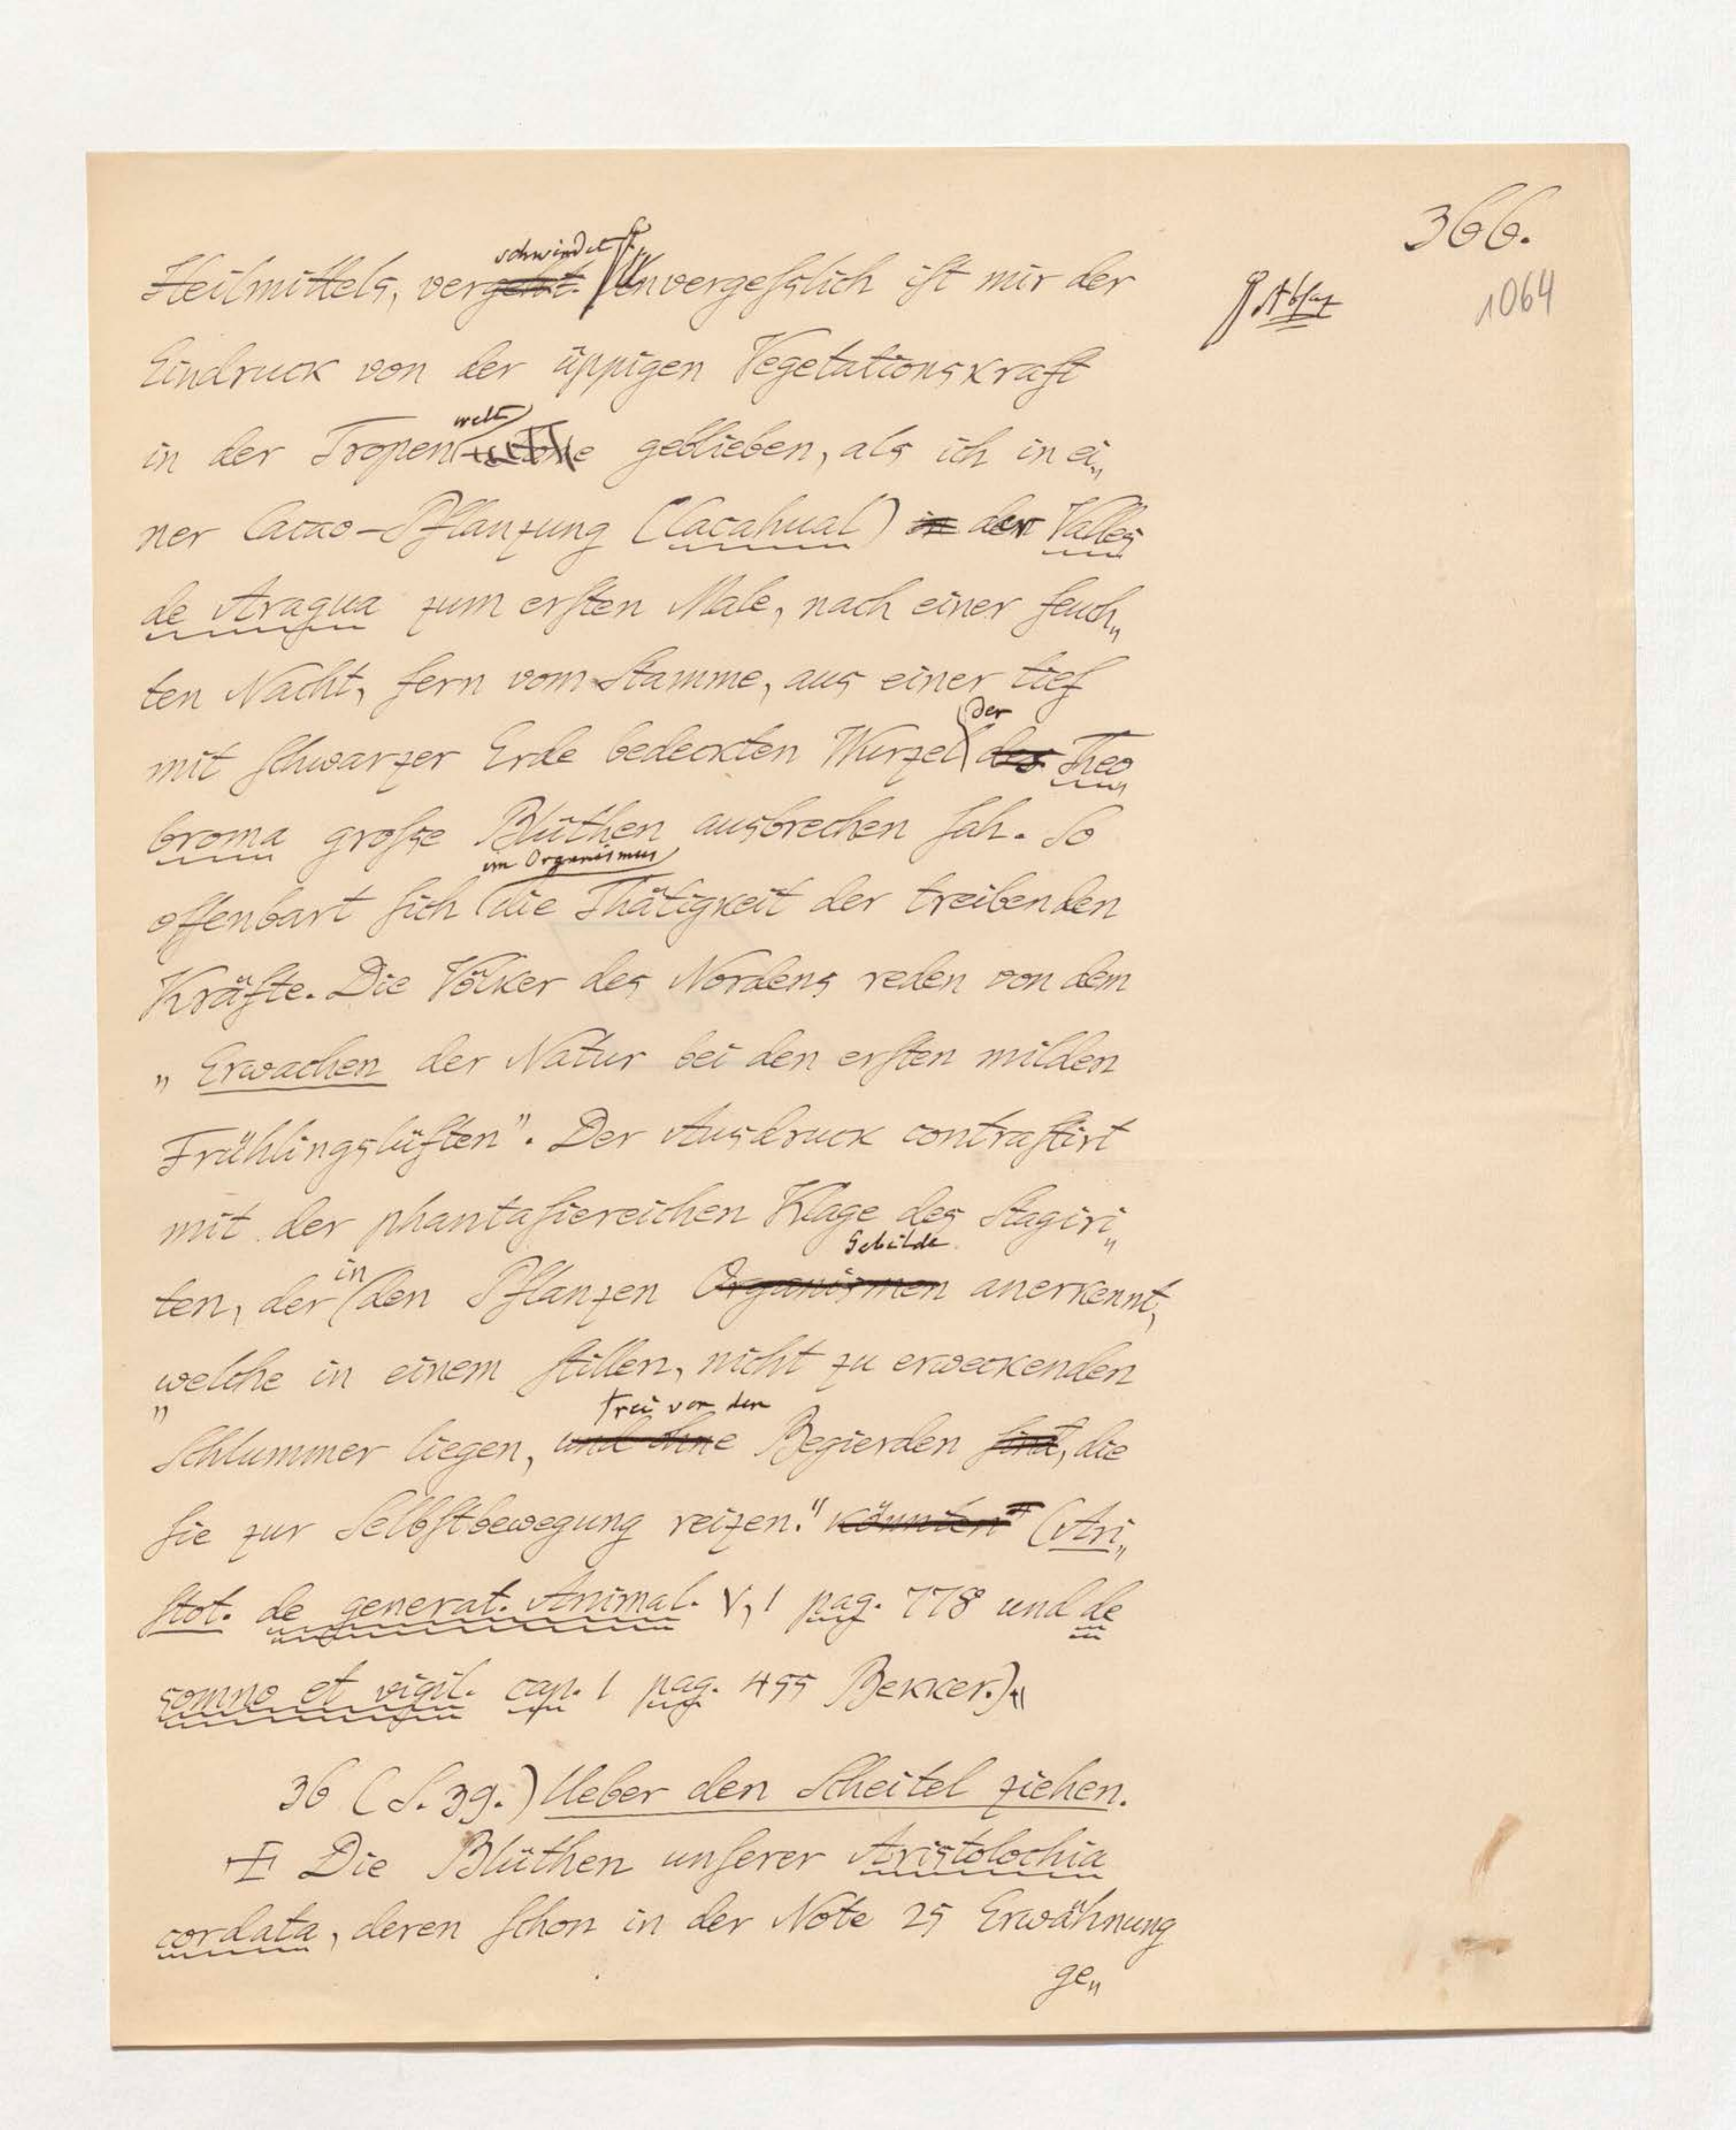 366.
1064
schwindet
Heilmittels, vergeht. Unvergeſslich iſt mir der
Absaz
Eindruck von der üppigen Vegetationskraft
welt
in der Tropen geblieben, als ich in ei„
ner Cacao-Pflanzung (Cacahual) in der Valles
de Aragua zum erſten Male, nach einer feuch„
ten Nacht, fern vom Stamme, aus einer tief
der
mit ſchwarzer Erde bedeckten Wurzel des Theo
broma groſse Blüthen ausbrechen ſah. So
im Organismus
offenbart ſich die Thätigkeit der treibenden
Kräfte. Die Völker des Nordens reden von dem
„Erwachen der Natur bei den erſten milden
Frühlingslüften". Der Ausdruck contraſtirt
mit der phantaſiereichen Klage des Stagiri„
in Gebilde
ten, der den Pflanzen Organismen anerkennt,
„welche in einem ſtillen, nicht zu erweckenden
frei von den
Schlummer liegen, und ohne Begierden ſind, die
ſie zur Selbſtbewegung reizen." könnten" (Ari„
ſtot. de generat. Animal. V, 1 pag. 778 und de
somno et vigil. cap. 1 pag. 455 Bekker.)
36 (S. 39.) Ueber den Scheitel ziehen.
Die Blüthen unſerer Aristolochia
cordata, deren ſchon in der Note 25 Erwähnung
ge„